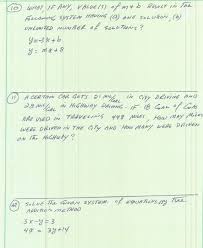 (10) WHAT, IF ANY, VALUE(S) OF m & b RESULT IN THE
FOLLOWING SYSTEM HAVING (a) ONE SOLUTION, (b)
UNLIMITED NUMBER OF SOLUTIONS?
y = -3x + b
y = mx + 8
11 A CERTAIN CAR GETS 21 MI/GAL IN CITY DRIVING AND
28 MI/GAL IN HIGHWAY DRIVING. IF 18 GAL OF GAS
ARE USED IN TRAVELING 448 MILES, HOW MANY MILES
WERE DRIVEN IN THE CITY AND HOW MANY WERE DRIVEN
ON THE HIGHWAY?
SOLVE THE GIVEN SYSTEM OF EQUATIONS BY THE
ADDITION METHOD
3x - y = 3
4x = 3y + 14